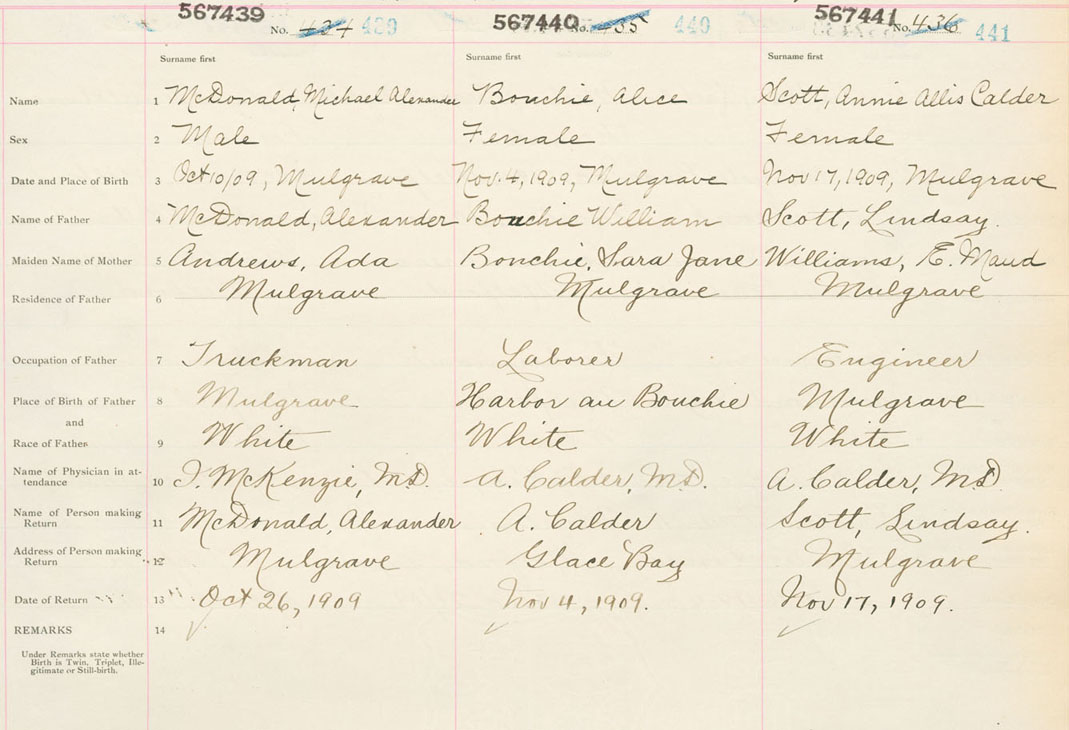 567439 567440 567441
No. 434 439 No. 435 440 No. 436 441
Surname first Surname first Surname first
Name 1 McDonald, Michael Alexander Bouchie, Alice Scott, Annie Allis Calder
Sex 2 Male Female Female
Date and Place of Birth 3 Oct 10/09, Mulgrave Nov. 4, 1909, Mulgrave Nov 17, 1909, Mulgrave
Name of Father 4 McDonald, Alexander Bouchie William Scott, Lindsay.
Maiden Name of Mother 5 Andrews, Ada Bouchie, Sara Jane Williams, E. Maud
Residence of Father 6 Mulgrave Mulgrave Mulgrave
Occupation of Father 7 Truckman Laborer Engineer
Place of Birth of Father 8 Mulgrave Harbor au Bouchie Mulgrave
and
Race of Father 9 White White White
Name of Physician in at-
tendance 10 J. McKenzie, M.D. A. Calder, M.D. A. Calder, M.D.
Name of Person making
Return 11 McDonald, Alexander A. Calder Scott, Lindsay.
Address of Person making
Return 12 Mulgrave Glace Bay Mulgrave
Date of Return 13 Oct 26, 1909 Nov 4, 1909. Nov 17, 1909.
REMARKS 14
Under Remarks state whether
Birth is Twin, Triplet, Ille-
gitimate or Still-birth.